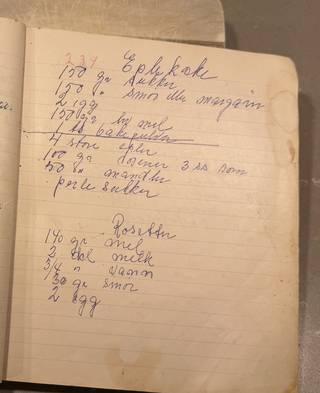 234
Eplekake
150 gr sukker
150 " smør eller margarin
2 egg
150 gr hv mel
1 ts bakepulver
4 store epler
100 gr rosiner 3 ss rom
50 " mandler
perle sukker
Rosetter
140 gr mel
2 dl melk
3/4 " vann
30 gr smør
2 egg